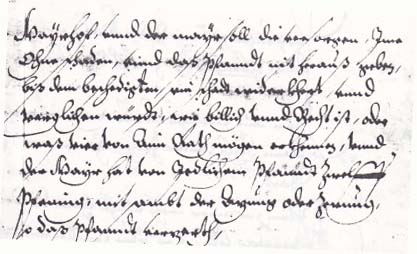 Mayrhof, vnnd der mayr soll die versorgen, Ime
Ohne schaden, vnnd daß Pfanndt nit herauß geben,
biß dem beschedigten, ein schade widerkhert, vnnd
verglichen würdt, wie billich vnnd Recht ist, oder
waß vier von Ain Rath mögen erkhennen, vnnd
der Mayr hat von Jedlichem Pfanndt Zwelff
Pfening, mit ambt der Zerung,
so daß Pfanndt verzerth,